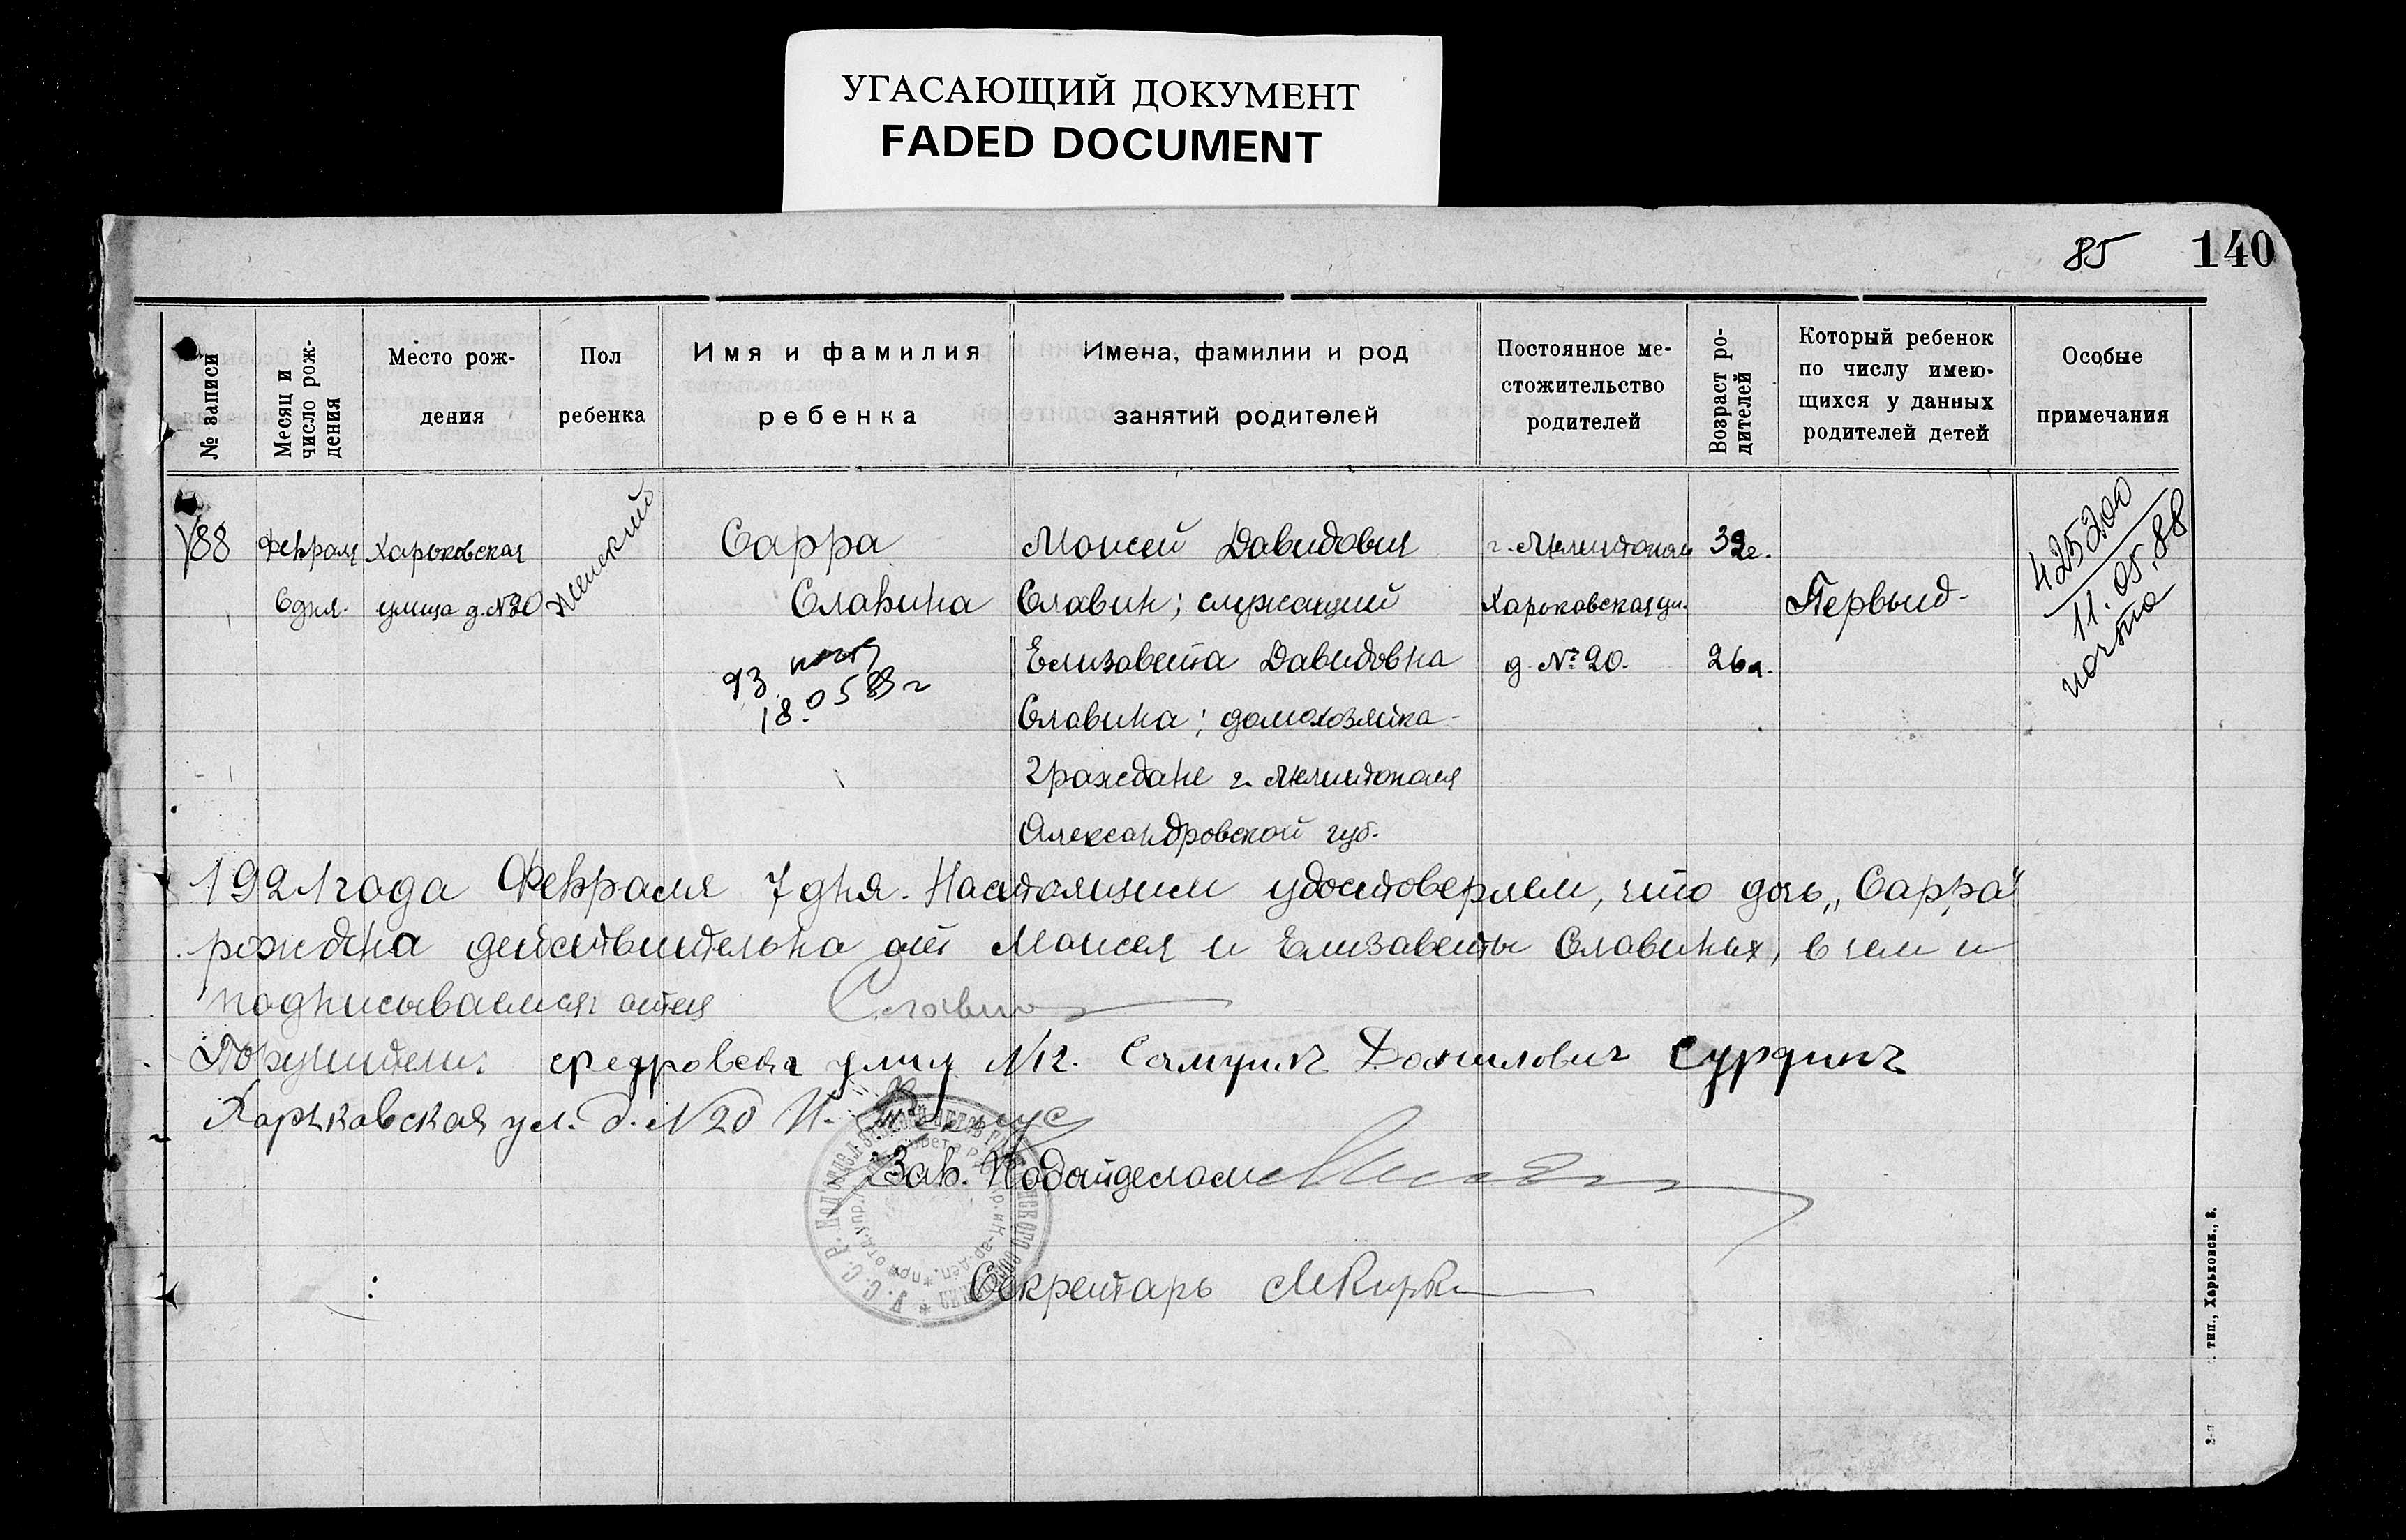 УГАСАЮЩИЙ ДОКУМЕНТ
FADED DOCUMENT
85 140
№ записи
Месяц и число рож-
дения
Место рож-
дения
Пол
ребенка
Имя и фамилия
ребенка
Имена, фамилии и род
занятий родителей
Постоянное ме-
стожительство
родителей
Возраст ро-
дителей
Который ребенок
по числу имею-
щихся у данных
родителей детей
Особые
примечания
188
Февраля
6 дня.
Харьковская
улица д. №20
Женский
Сарра
Славина
93
18.05 88 г
Моисей Давидович
Славин; служащий
Елизавета Давидовна
Славина; домохозяйка
Граждане г. Мелитополя
Александровской губ.
г. Мелитополь
Харьковская ул.
д. №20.
32 г.
26 л.
Первый
425200
11.05.88
почта
1921 года Февраля 7 дня. Настоящим удостоверяем, что дочь „Сарра"
рождена действительно от Моисея и Елизаветы Славиных, в чем и
подписываемся: отец Славин
Поручители: улиц №12. Самуил Сурдинъ
Харьковская ул. д. №20 И.
Зав. Подотделом
Секретарь
У. С. С. Р.
тип., Харьковск., 8.